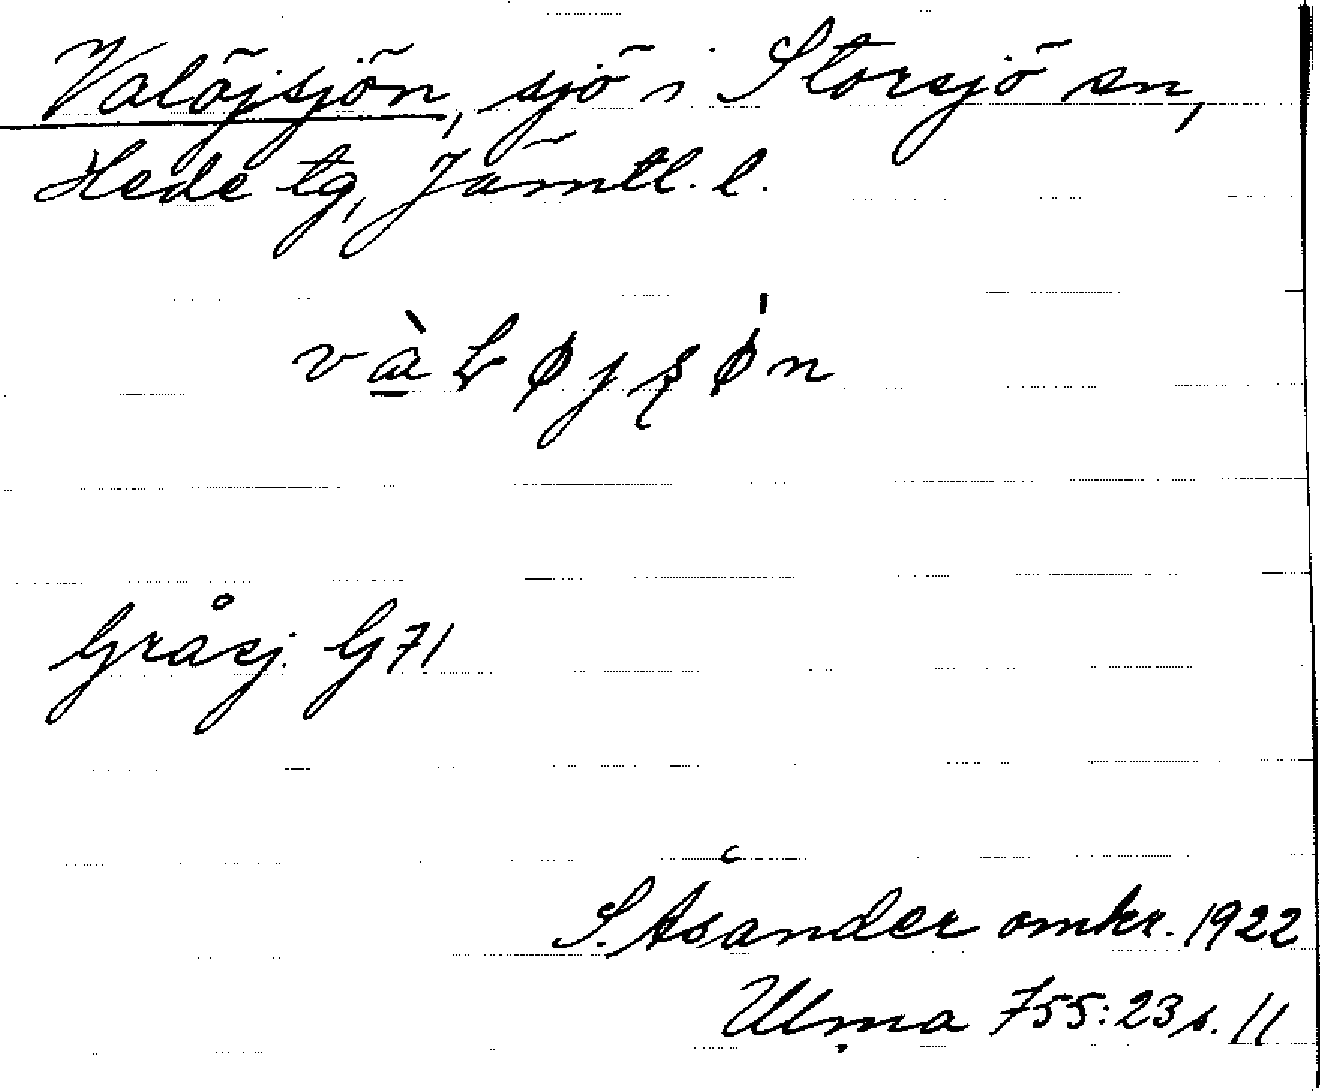 Valöjsjön, sjö i Storsjö sn,
Hede tg, Jämtl. l.
Gråsj. G 71
S. Åsander omkr. 1922
Ulma 755:23 s. 11